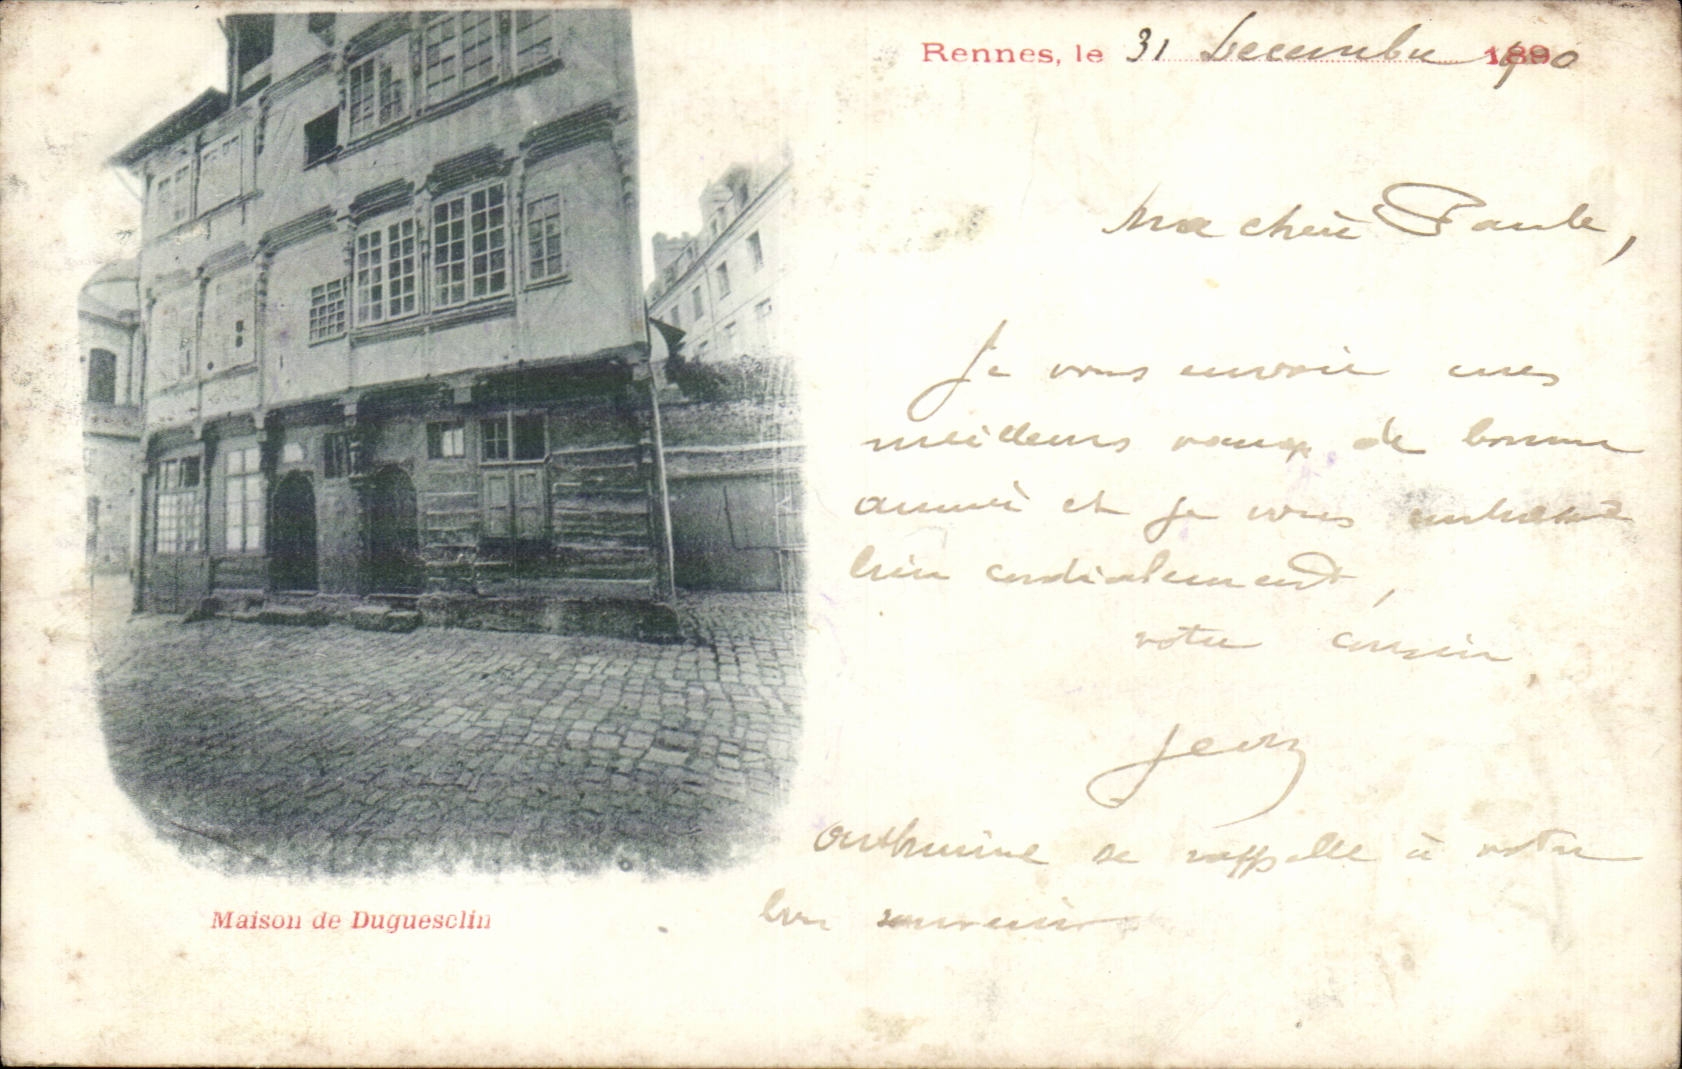 Rennes, le 31 Decembre 1900
Ma chère Paule,
Je vous envoie mes
meilleurs vœux de bonne
année et je vous embrasse
bien cordialement,
votre cousin
Jean
se rappelle à votre
bon souvenir
Maison de Duguesclin